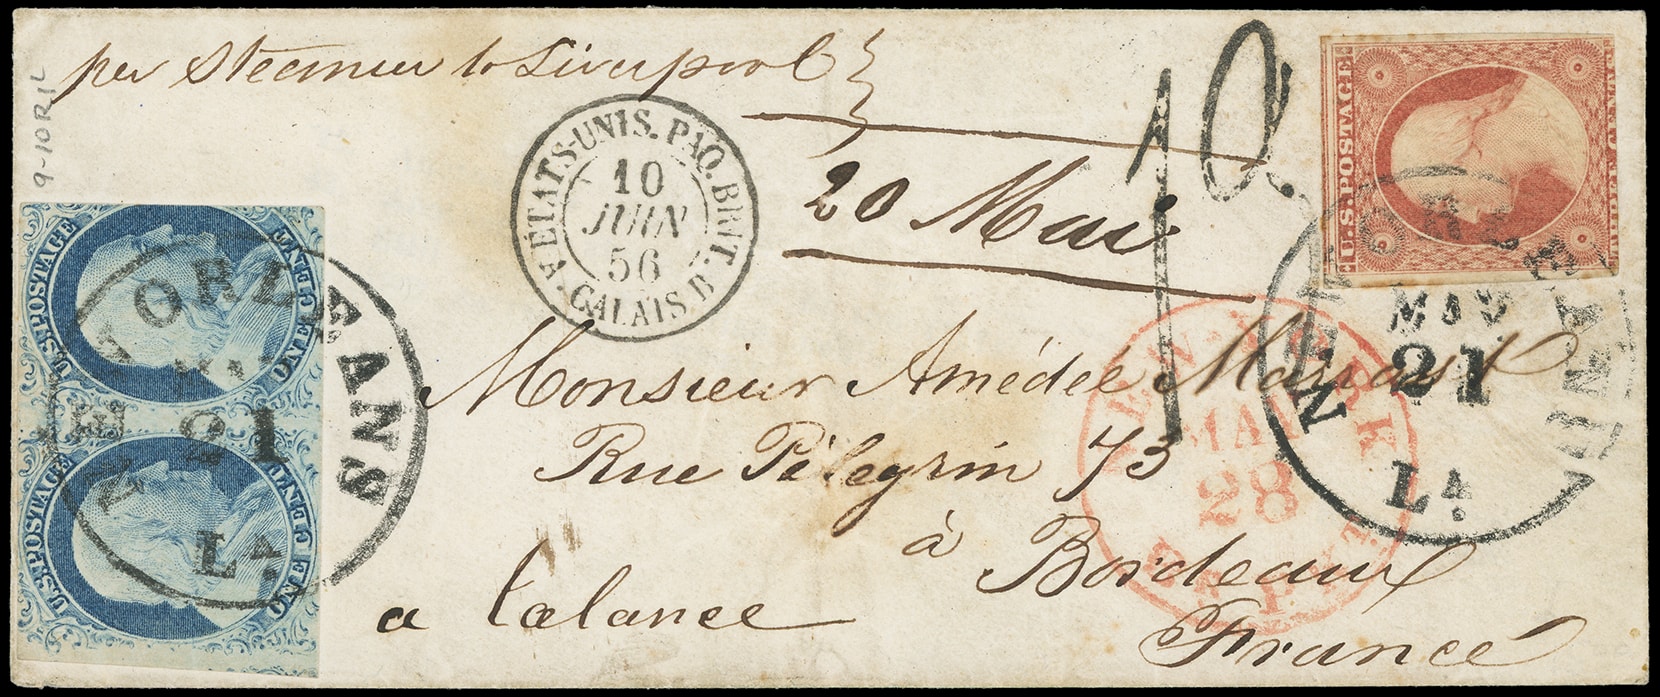 per Steamer to Liverpool
20 Mai
10
Monsieur Amédée Marrast
Rue Pèlegrin 73
à Bordeaux
a Talance
France
9-10R1L
ÉTATS-UNIS. PAQ. BRIT. A. CALAIS. B
10
JUIN
56
U.S. POSTAGE
ONE CENT
U.S. POSTAGE
ONE CENT
U.S. POSTAGE
THREE CENTS
N. ORLEANS
21
LA.
NEW ORLEANS
MAY
21
LA.
NEW-YORK
MAY
28